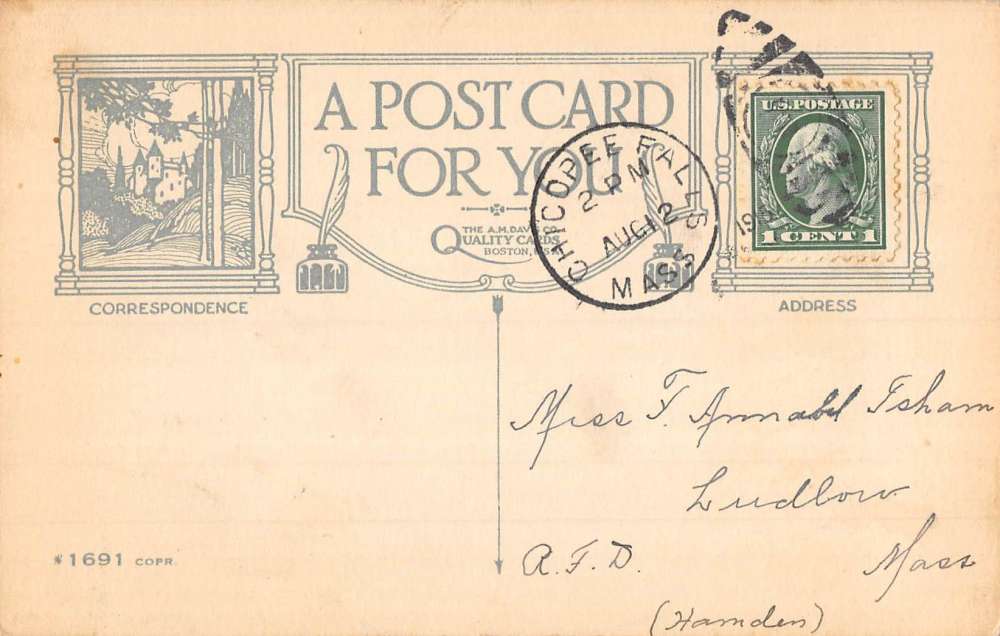 A POST CARD
FOR YOU
THE A.M. DAVIS CO.
QUALITY CARDS
BOSTON, U.S.A.
CORRESPONDENCE
CHICOPEE FALLS
2 PM
AUG 12
MASS.
U.S. POSTAGE
1 CENT 1
ADDRESS
Miss F. Annabel Isham
Ludlow
R.F.D. Mass
(Hamden)
*1691 COPR.